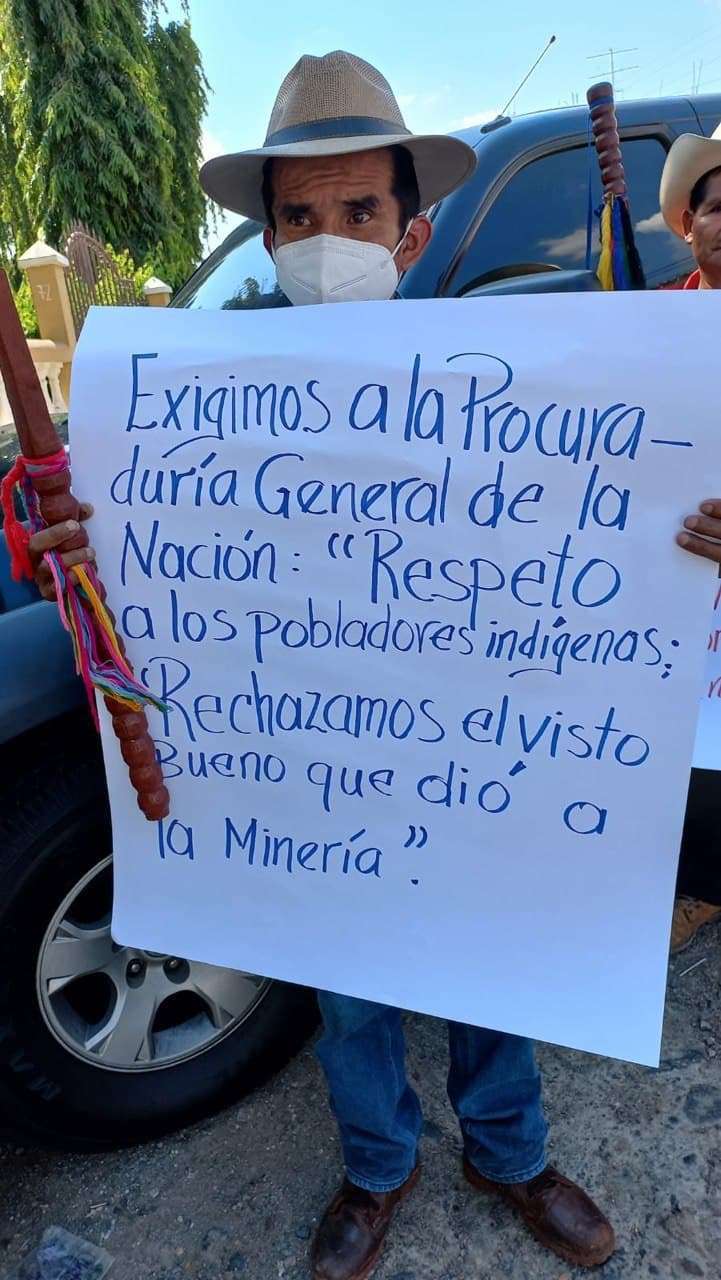 Exigimos a la Procura-
duría General de la
Nación: "Respeto
a los pobladores indígenas;
"Rechazamos el visto
Bueno que dió a
la Minería".